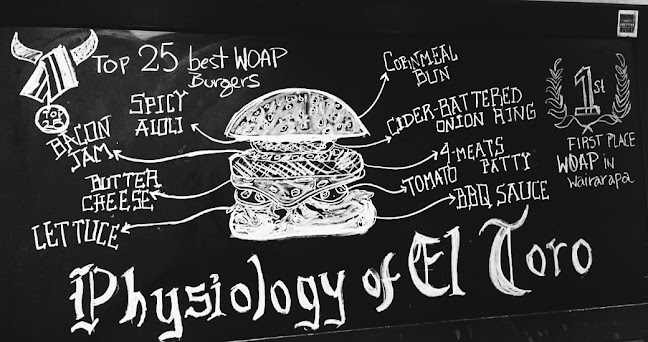 Top 25 best WOAP
Burgers
CORNMEAL
BUN
SPICY
AIOLI
CIDER-BATTERED
ONION RING
1st
BACON
JAM
4-MEATS
PATTY
FIRST PLACE
WOAP in
Wairarapa
BUTTER
CHEESE
TOMATO
BBQ SAUCE
LETTUCE
Physiology of El Toro